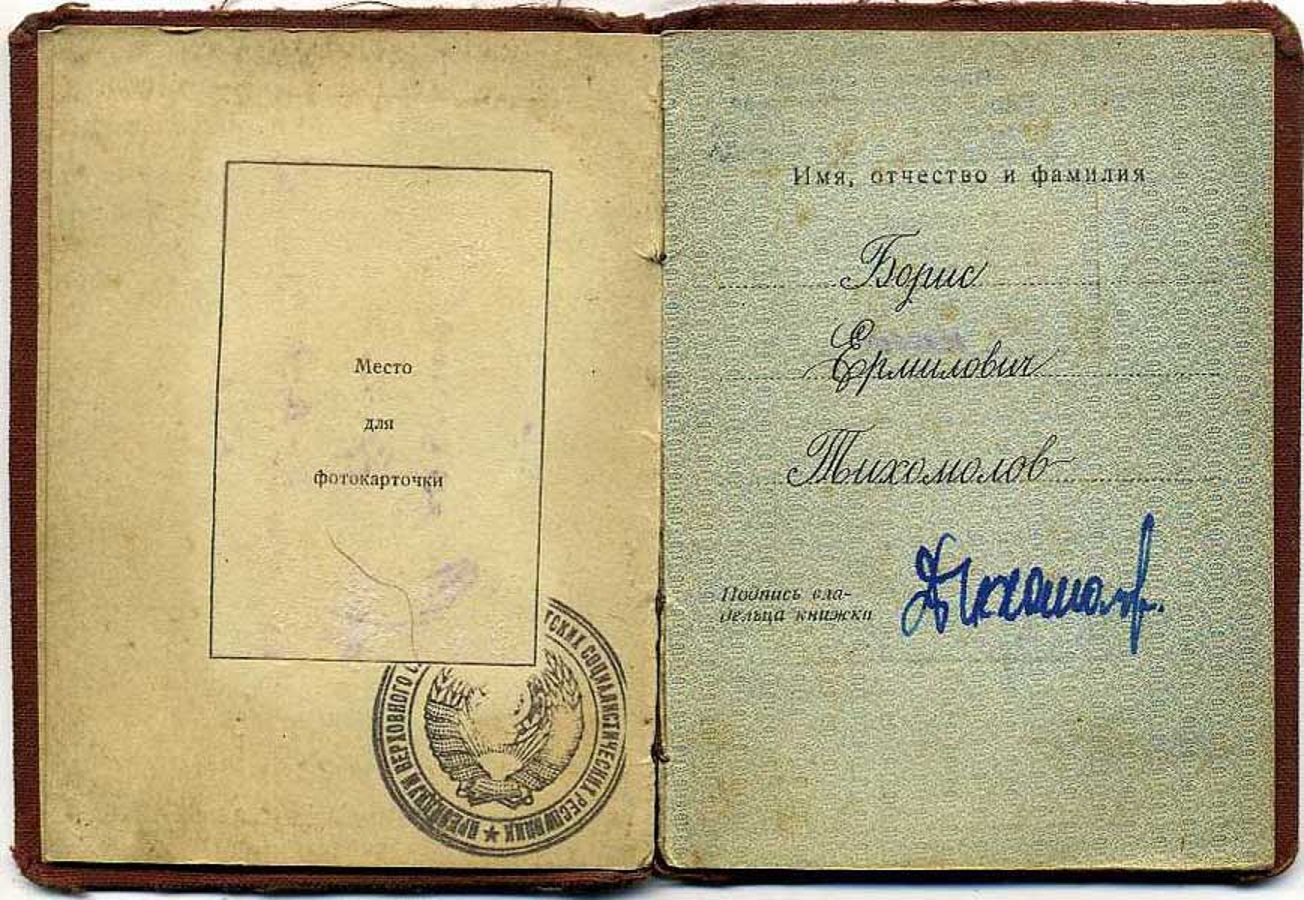 Место
для
фотокарточки
ПРЕЗИДИУМ ВЕРХОВНОГО ТСКИХ СОЦИАЛИСТИЧЕСКИХ РЕСПУБЛИК
Имя, отчество и фамилия
Борис
Ермилович
Тихомолов
Подпись вла-
дельца книжки